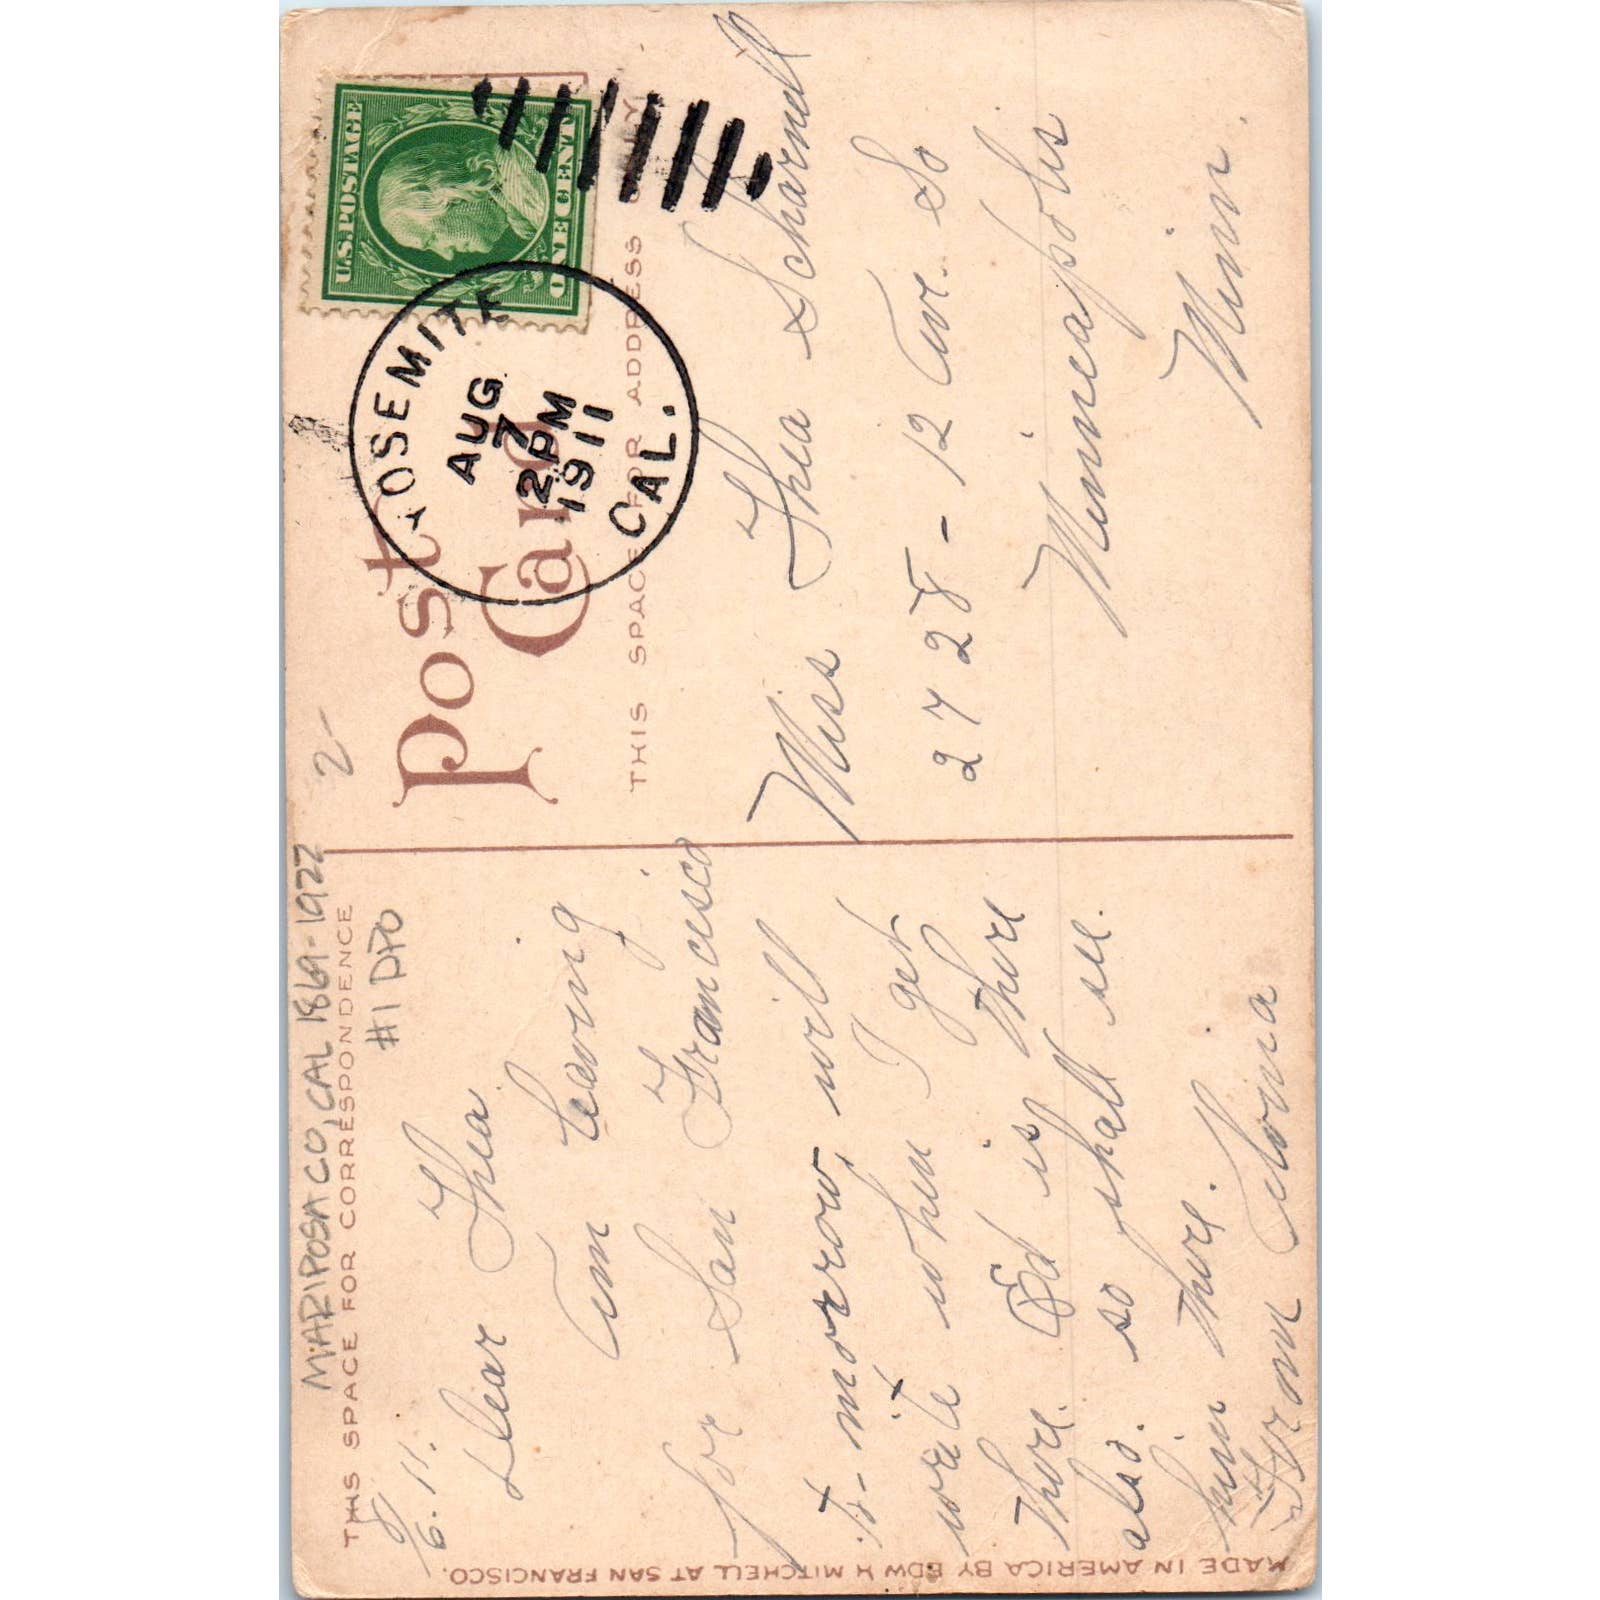 MARIPOSA CO, CAL 1869-1922
THIS SPACE FOR CORRESPONDENCE
#1 DPO
2-
8/6. 11.
Dear Thea
Am leaving
for San Francisco
to-morrow, will
write when I get
there. Ed is there
also. so shall see
him there.
From
MADE IN AMERICA BY EDW H MITCHELL AT SAN FRANCISCO.
Post Card
THIS SPACE FOR ADDRESS ONLY
U.S. POSTAGE
ONE CENT
YOSEMITE
AUG.
7
2 PM
1911
CAL.
Miss Thea Scharnell
2728 - 12 Ave. So
Minneapolis
Minn.